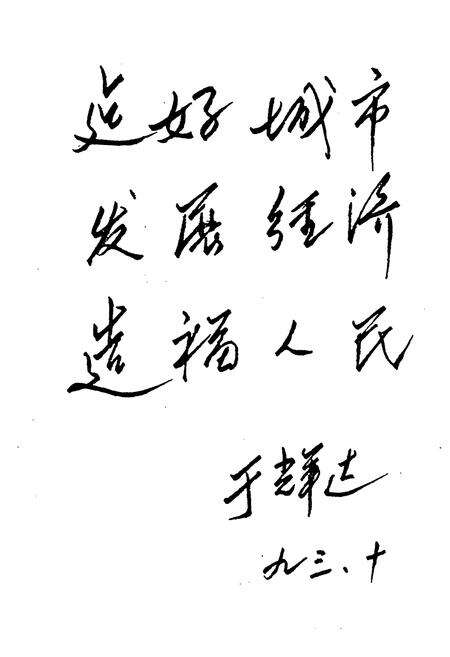 造好城市
发展经济
造福人民
于辉达
九三、十